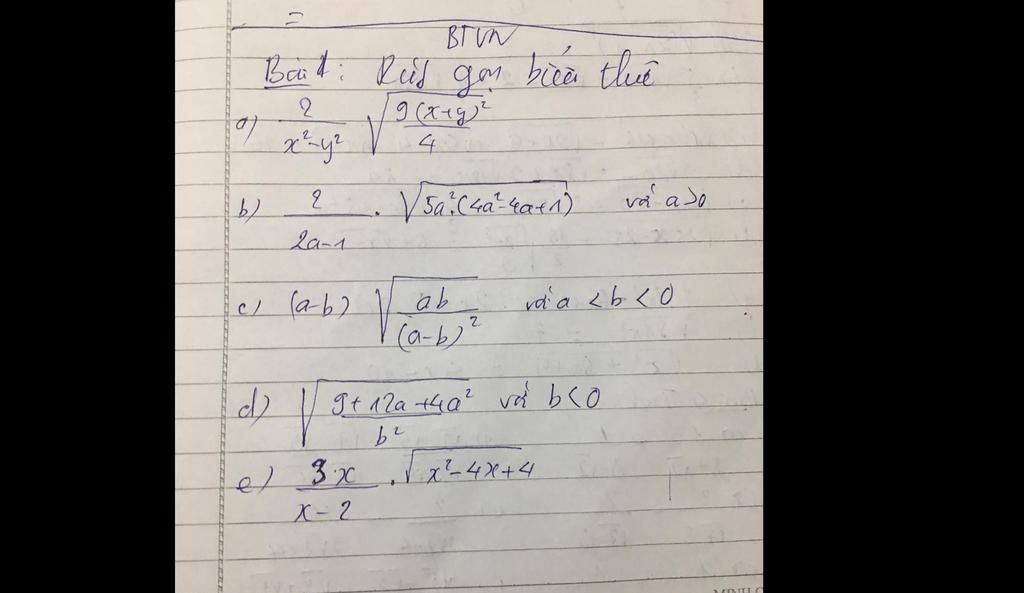 BTVN
Bài 1: Rút gọn biểu thức
a) 2/(x²-y²) √(9(x+y)²/4)
b) 2/(2a-1) . √(5a²(4a²-4a+1)) với a>0
c) (a-b) √(ab/(a-b)²) với a < b < 0
d) √((9+12a+4a²)/b²) với b<0
e) 3x/(x-2) . √(x²-4x+4)